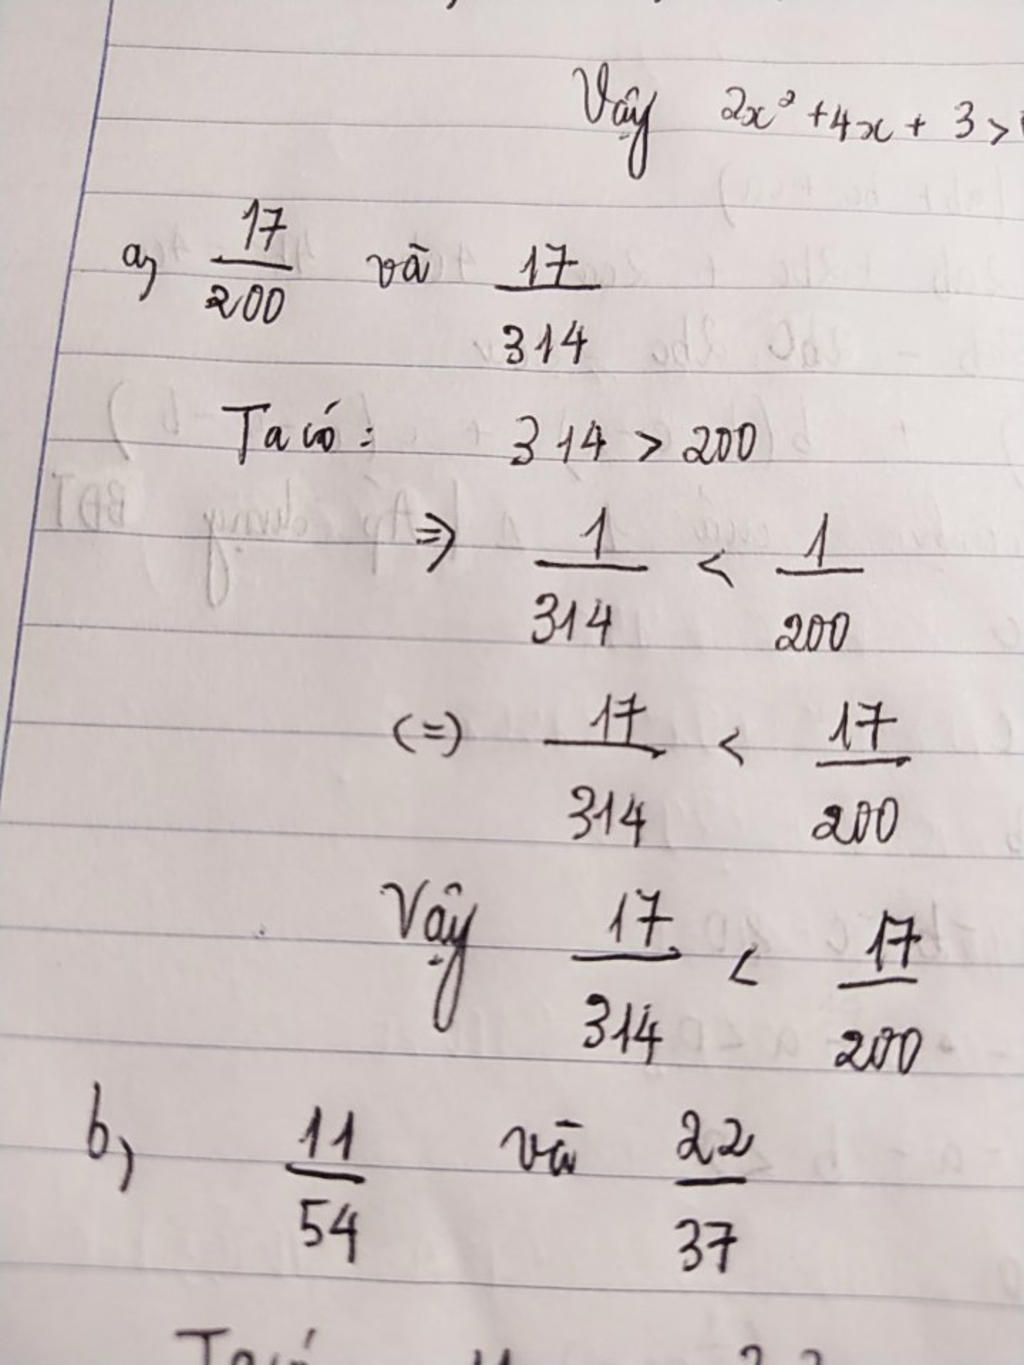 Vậy 2x² + 4x + 3 >
a, 17/200 và 17/314
Ta có: 314 > 200
=> 1/314 < 1/200
(=) 17/314 < 17/200
Vậy 17/314 < 17/200
b, 11/54 và 22/37
Ta có